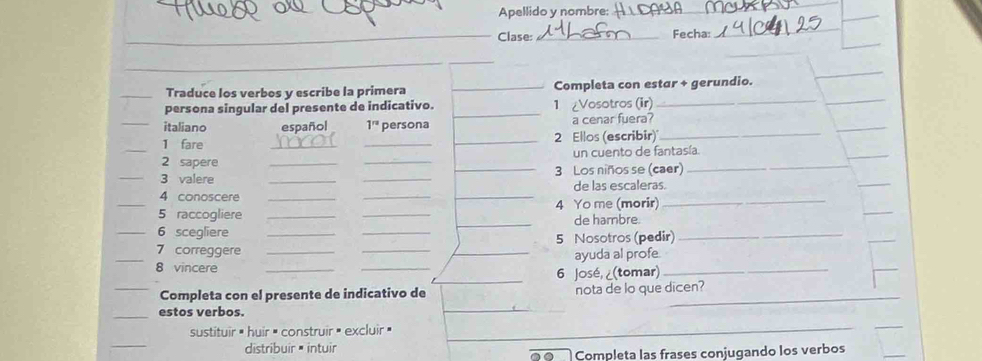 Apellido y nombre: HIDAYA
Clase: Fecha: 14/04/25
Traduce los verbos y escribe la primera
persona singular del presente de indicativo.
italiano español 1ʳᵃ persona
1 fare
2 sapere
3 valere
4 conoscere
5 raccogliere
6 scegliere
7 correggere
8 vincere
Completa con el presente de indicativo de
estos verbos.
sustituir ▪ huir ▪ construir ▪ excluir ▪
distribuir ▪ intuir
Completa con estar + gerundio.
1 ¿Vosotros (ir)
a cenar fuera?
2 Ellos (escribir)
un cuento de fantasía.
3 Los niños se (caer)
de las escaleras.
4 Yo me (morir)
de hambre.
5 Nosotros (pedir)
ayuda al profe.
6 José, ¿(tomar)
nota de lo que dicen?
Completa las frases conjugando los verbos